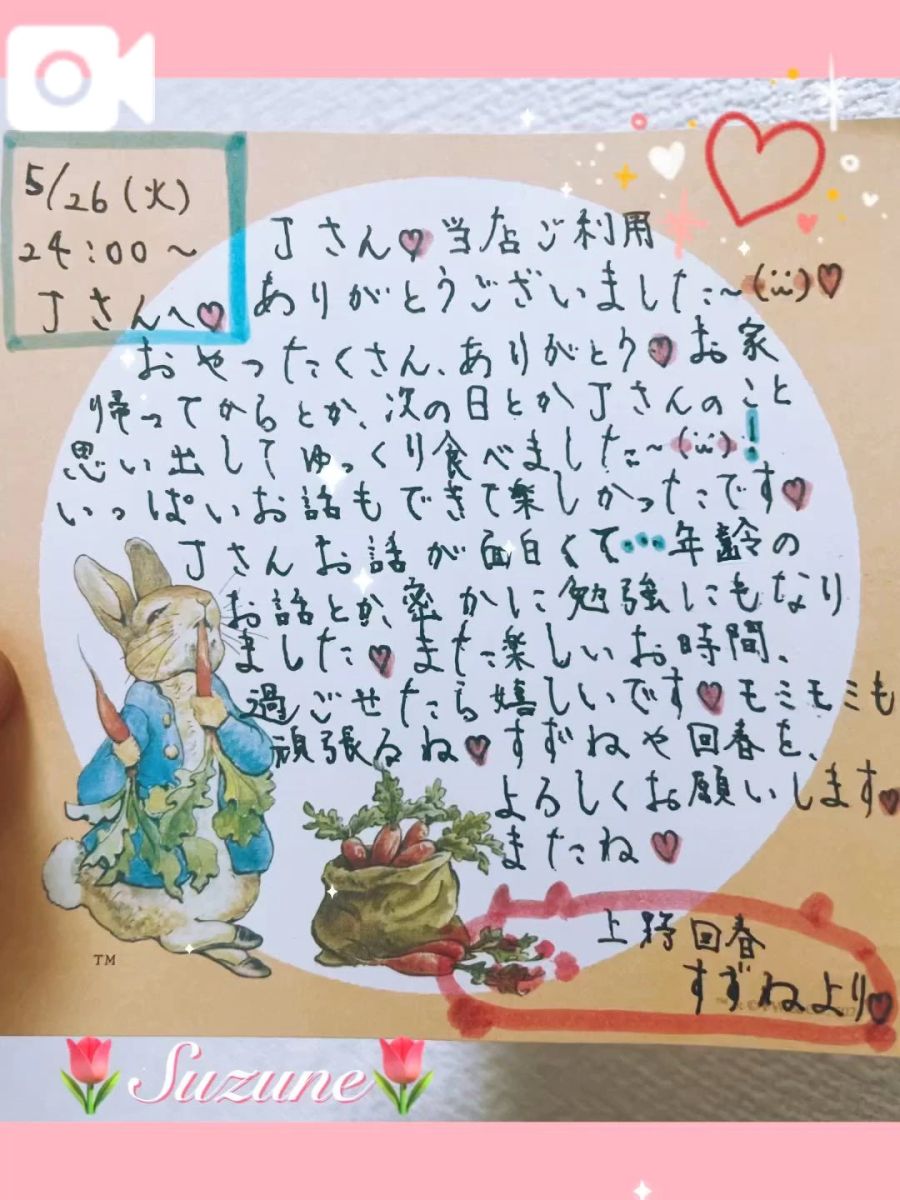 5/26(火)
24:00～
Jさんへ♡
Jさん♡当店ご利用
ありがとうございました～(ü)♡
おやつたくさん、ありがとう♡お家
帰ってからとか、次の日とかJさんのこと
思い出してゆっくり食べました～(ü)!
いっぱいお話もできて楽しかったです♡
Jさんお話が面白くて…年齢の
お話とか、密かに勉強にもなり
ました♡また楽しいお時間、
過ごせたら嬉しいです♡モミモミも
頑張るね♡すずねや回春を、
よろしくお願いします♡
またね♡
上野回春
すずねより♡
TM
Suzune